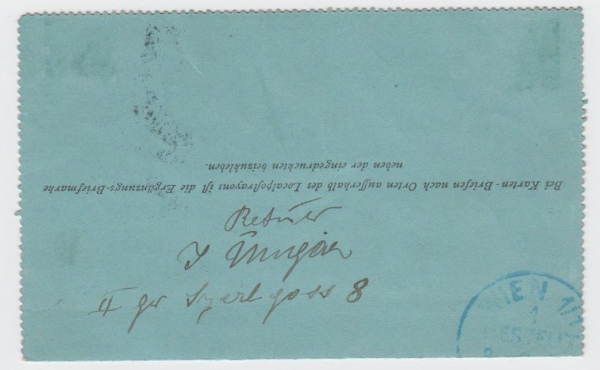 Bei Karten-Briefen nach Orten ausserhalb des Localpostrayons ist die Ergänzungs-Briefmarke
neben der eingedruckten beizukleben.
Retour
J Ungar
II 8
WIEN 1/1
1